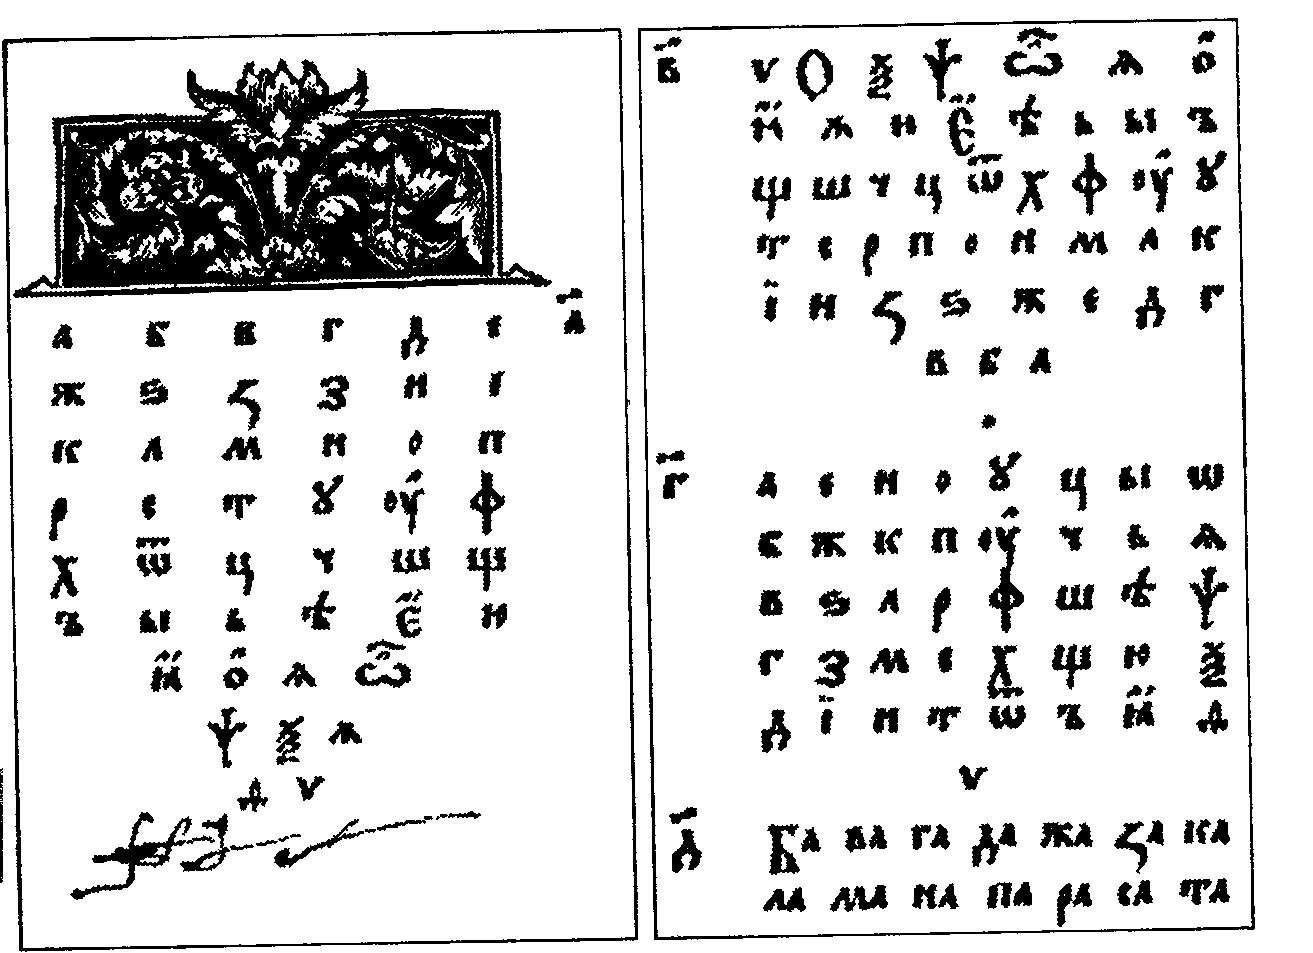 а б в г д е а҃
ж ѕ ꙁ з и і
к л м н о п
р с т ꙋ оу ф
х ѿ ц ч ш щ
ъ ы ь ѣ є ю
ꙗ о ѧ ѡ
ѱ ѯ ѫ
ѳ ѵ
в҃ ѵ ѳ ѯ ѱ ѡ ѧ о
ꙗ ѫ ю є ѣ ь ы ъ
щ ш ч ц ѿ х ф оу ꙋ
т с р п о н м л к
ї и ꙁ ѕ ж е д г
в б а
г҃ а е и о ꙋ ц ы ѡ
б ж к п оу ч ь ѧ
в ѕ л р ф ш ѣ ѱ
г з м с х щ ю ѯ
д ї н т ѿ ъ ꙗ ѳ
ѵ
д҃ Ба ва га да жа ꙁа ка
ла ма на па ра са та